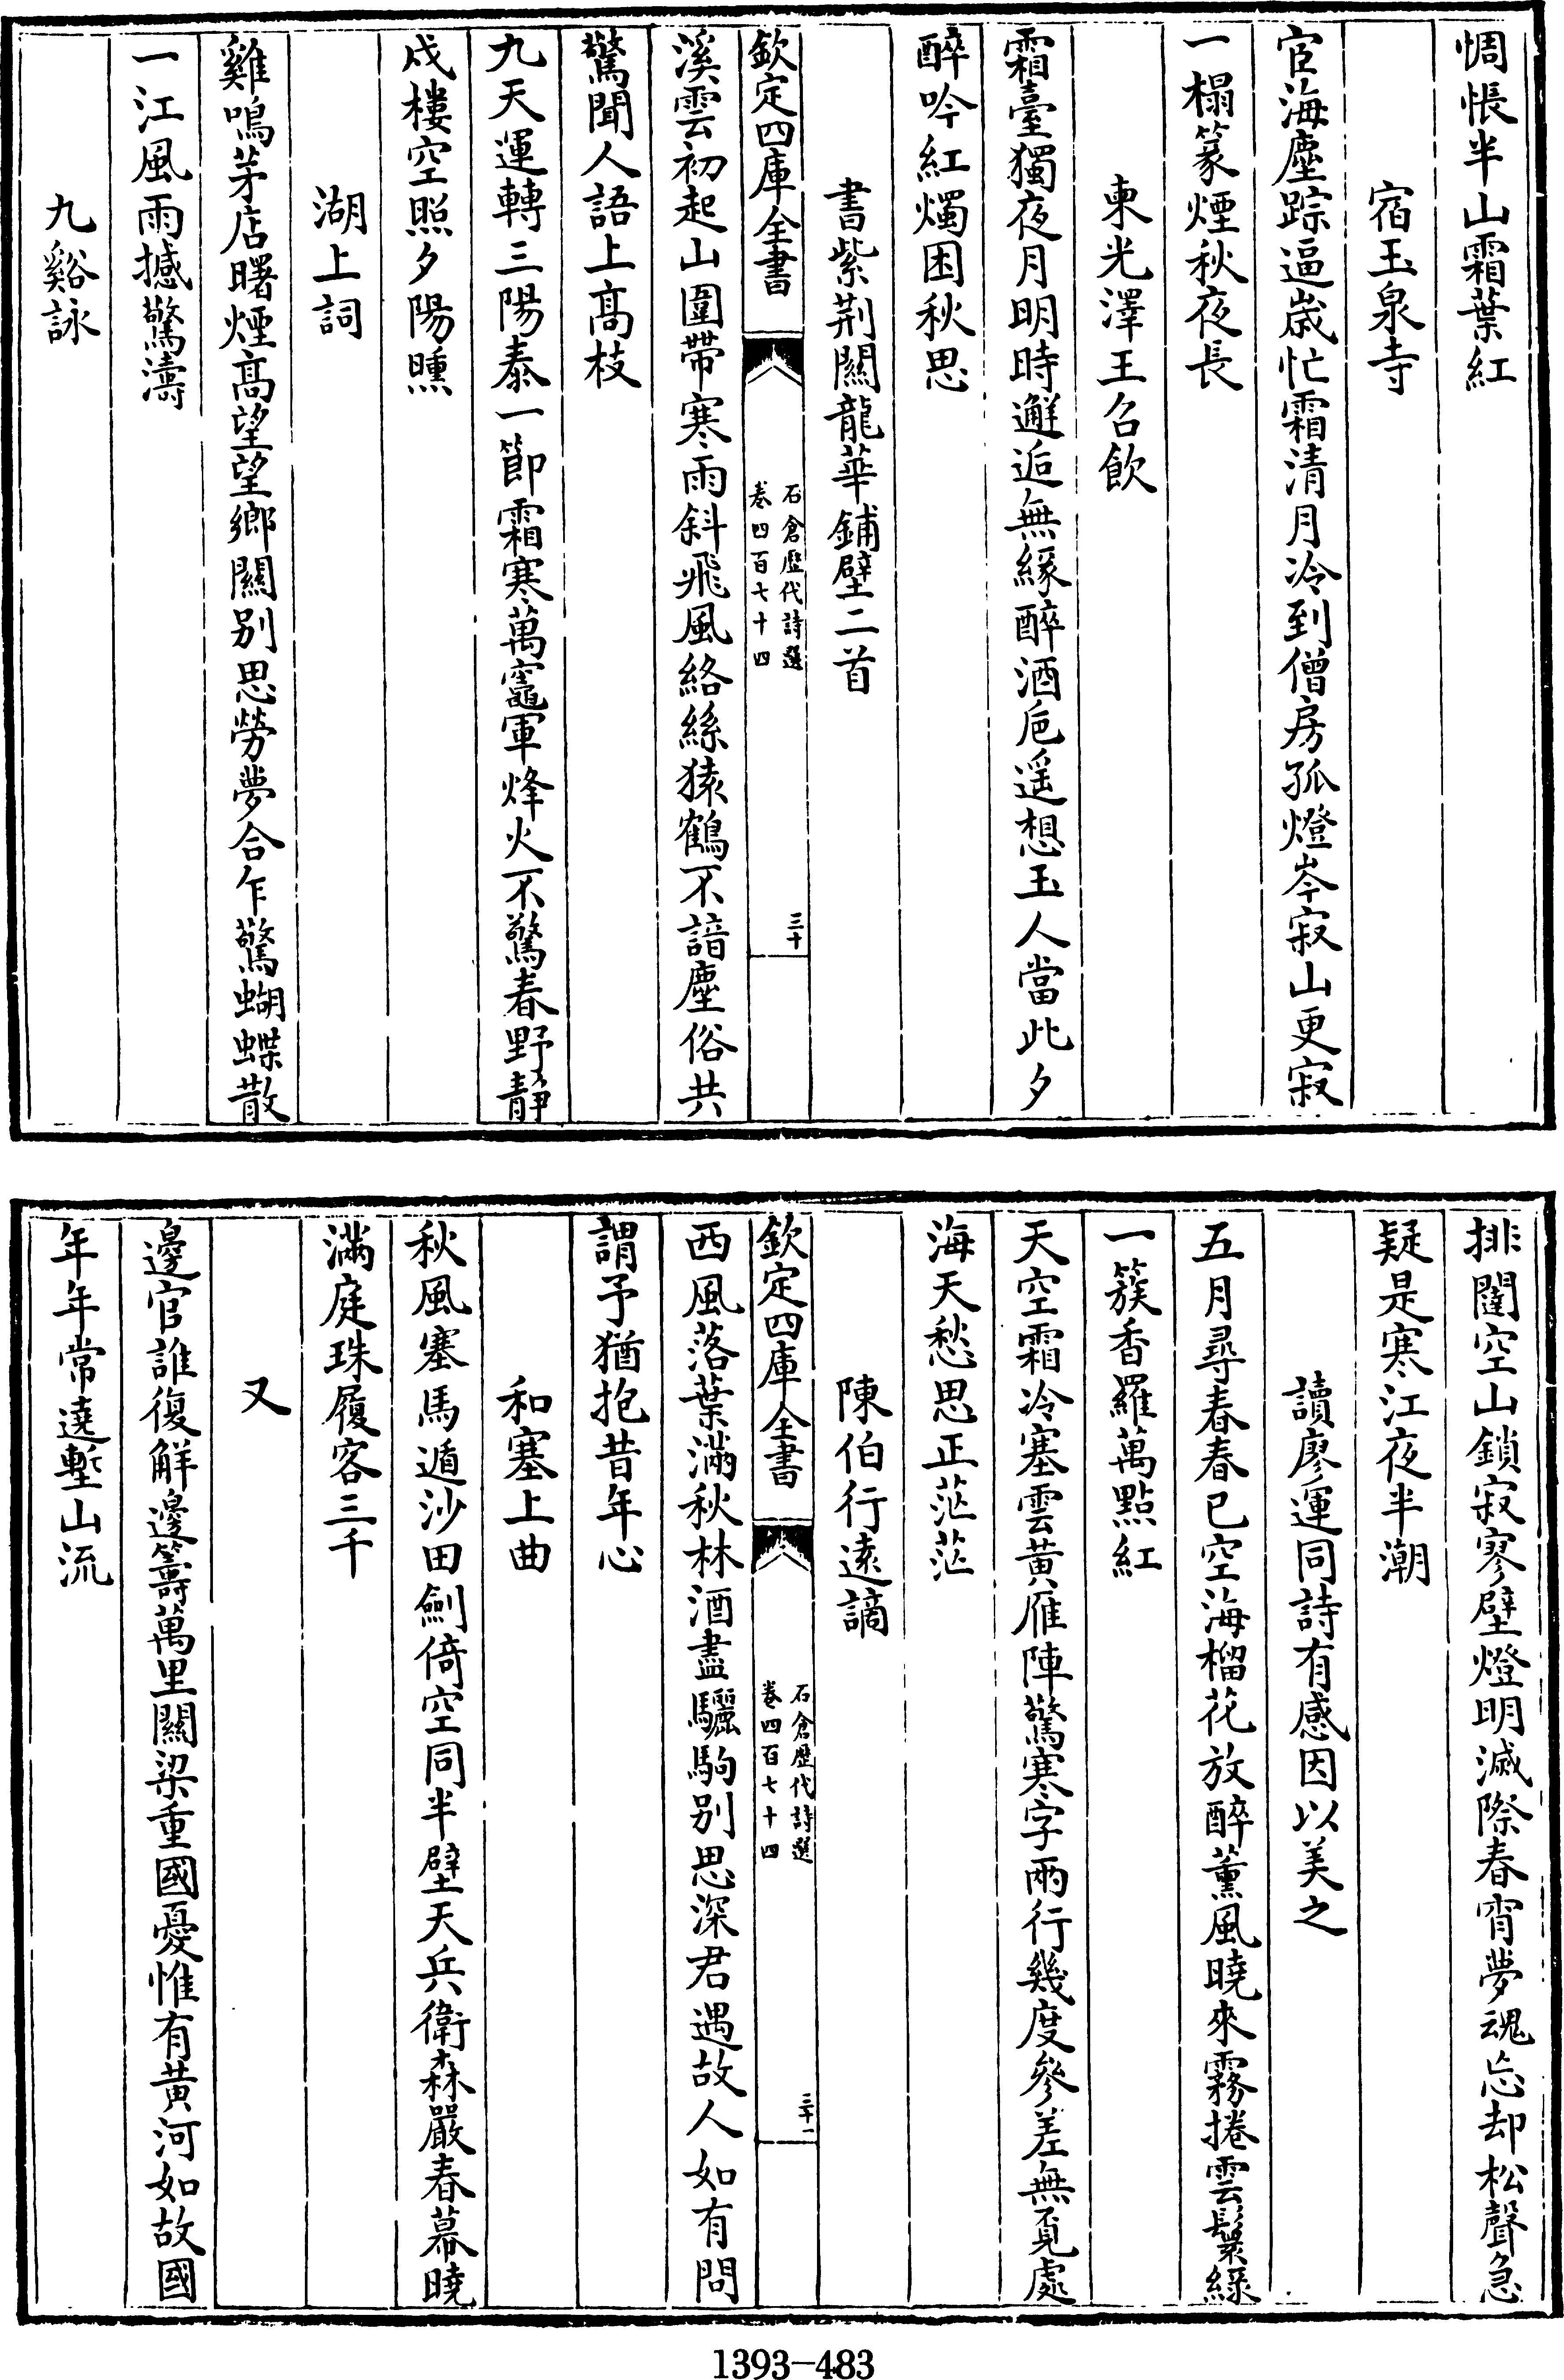 惆悵半山霜葉紅
宿玉泉寺
宦海塵踪逼嵗忙霜清月冷到僧房孤燈岑寂山更寂
一榻篆煙秋夜長
東光澤王召飲
霜臺獨夜月明時邂逅無緣醉酒巵遥想玉人當此夕
醉吟紅燭困秋思
書紫荆關龍華鋪壁二首
欽定四庫全書
石倉歴代詩選
卷四百七十四
三十
溪雲初起山圍帶寒雨斜飛風絡絲猿鶴不諳塵俗共
驚聞人語上髙枝
九天運轉三陽泰一節霜寒萬竈軍烽火不驚春野靜
戍樓空照夕陽曛
湖上詞
雞鳴茅店曙煙髙望望鄉關别思勞夢合乍驚蝴蝶散
一江風雨撼驚濤
九谿詠
排闥空山鎖寂寥壁燈明滅際春宵夢魂忘却松聲急
疑是寒江夜半潮
讀廖運同詩有感因以美之
五月尋春春已空海榴花放醉薰風曉來霧捲雲鬟緑
一簇香羅萬點紅
天空霜冷塞雲黄雁陣驚寒字兩行幾度參差無覓處
海天愁思正茫茫
陳伯行遠謫
欽定四庫全書
石倉歴代詩選
卷四百七十四
三十一
西風落葉滿秋林酒盡驪駒别思深君遇故人如有問
謂予猶抱昔年心
和塞上曲
秋風塞馬遁沙田劍倚空同半壁天兵衛森嚴春幕曉
滿庭珠履客三千
又
邊官誰復解邊籌萬里關梁重國憂惟有黄河如故國
年年常遶塹山流
1393-483